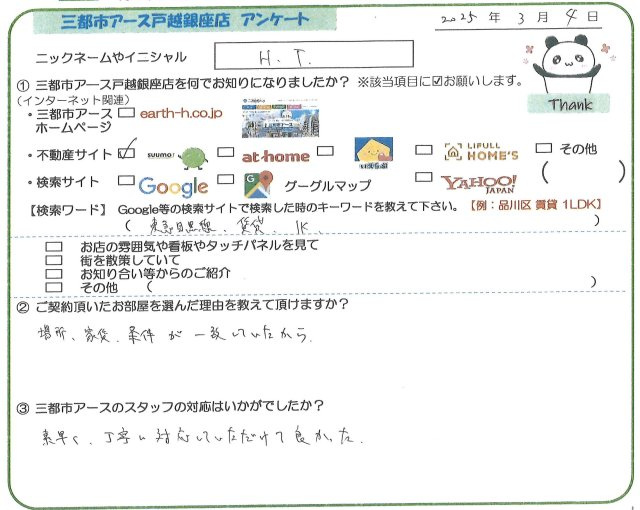 三都市アース戸越銀座店 アンケート
2025 年 3 月 4 日
ニックネームやイニシャル H. T.
① 三都市アース戸越銀座店を何でお知りになりましたか? ※該当項目に☑お願いします。
(インターネット関連)
Thank
・三都市アース □ earth-h.co.jp
ホームページ
・不動産サイト ☑ suumo □ at-home □ □ LIFULL HOME'S □ その他
・検索サイト □ Google □ グーグルマップ □ YAHOO! JAPAN ( )
【検索ワード】 Google等の検索サイトで検索した時のキーワードを教えて下さい。【例:品川区 賃貸 1LDK】
( 東急目黒線、賃貸、1K、 )
□ お店の雰囲気や看板やタッチパネルを見て
□ 街を散策していて
□ お知り合い等からのご紹介
□ その他 ( )
② ご契約頂いたお部屋を選んだ理由を教えて頂けますか?
場所、家賃、条件が一致していたから。
③ 三都市アースのスタッフの対応はいかがでしたか?
素早く、丁寧に対応していただけて良かった。